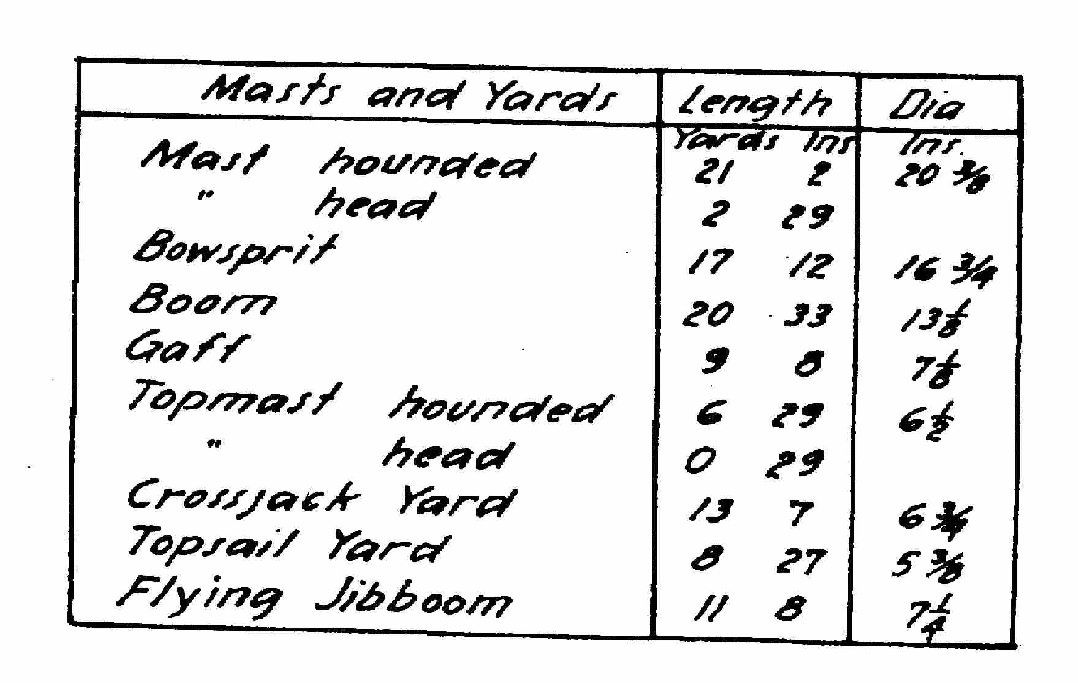 Masts and Yards Length Dia
Yards Ins Ins.
Mast hounded 21 2 20 3/8
" head 2 29
Bowsprit 17 12 16 3/4
Boom 20 33 13 1/8
Gaff 9 8 7 1/8
Topmast hounded 6 29 6 1/2
" head 0 29
Crossjack Yard 13 7 6 3/4
Topsail Yard 8 27 5 3/8
Flying Jibboom 11 8 7 1/4